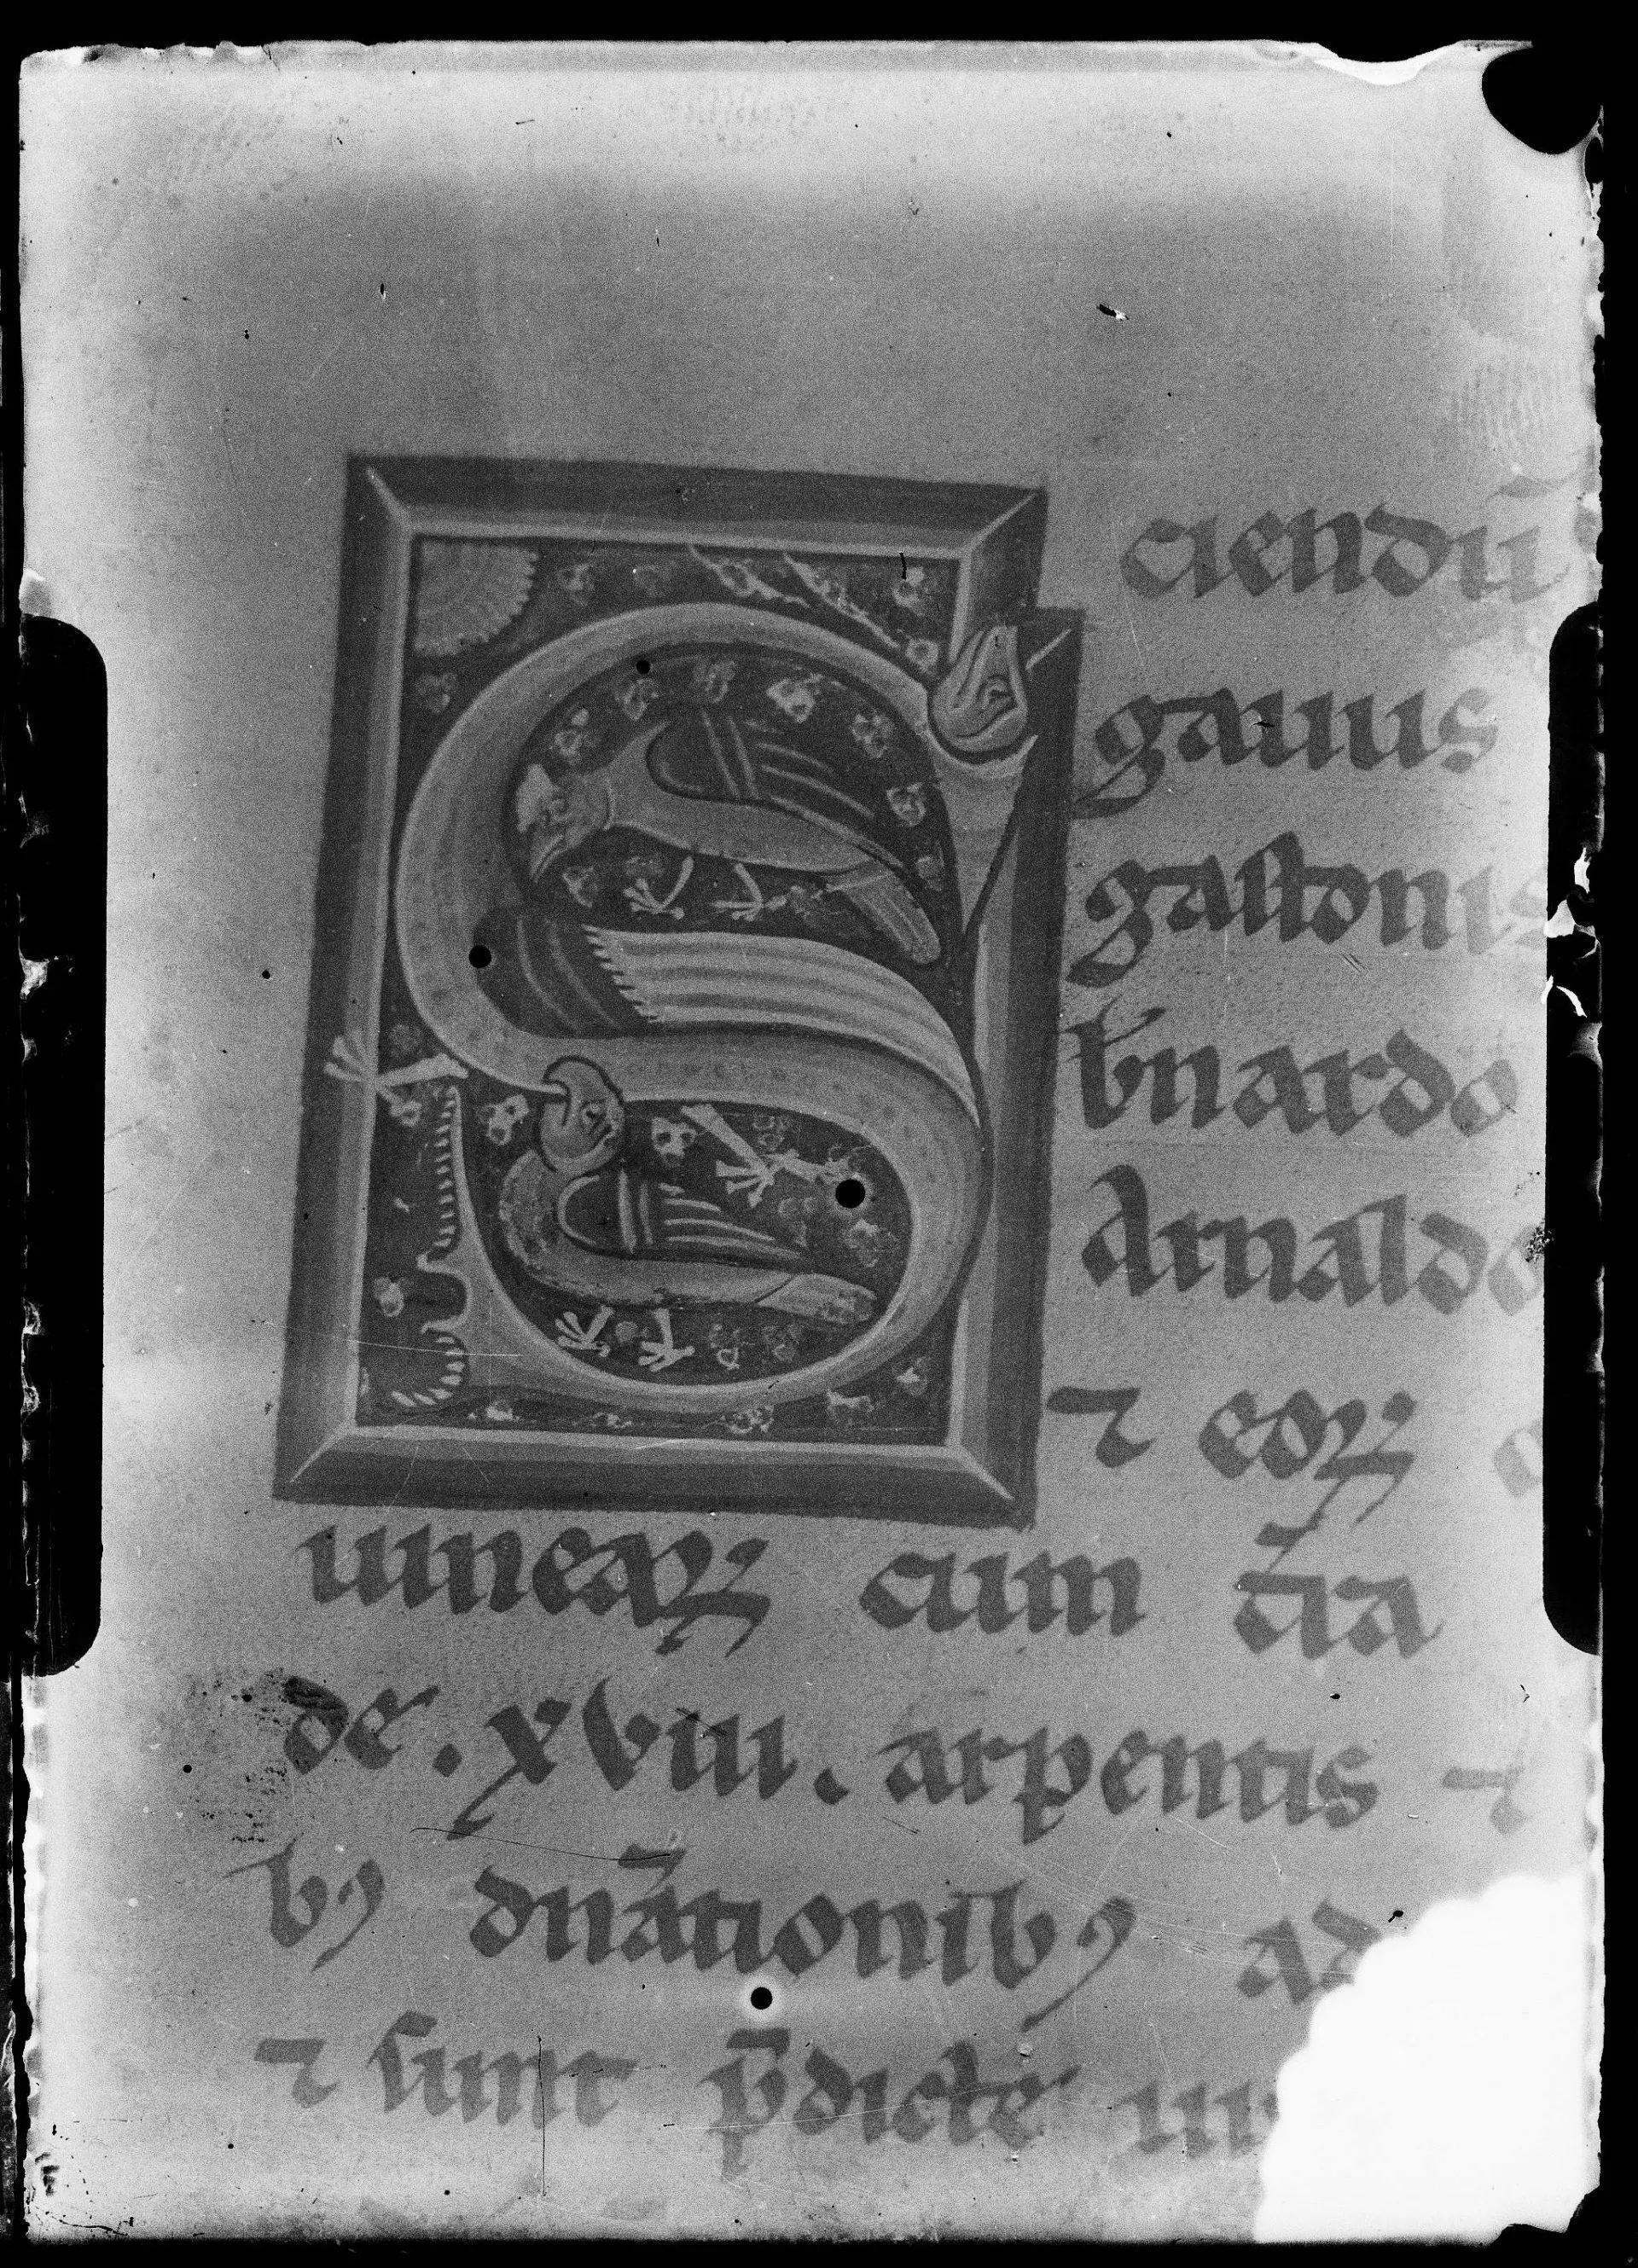 S ciendū
gauus
gastonis
b'nardo
Arnaldo
⁊ eoꝝ
uineaꝝ cum t̄ia
de . xviii . arpentis ⁊
bꝰ dn̄ationibꝰ ad
⁊ sunt p̄dicte